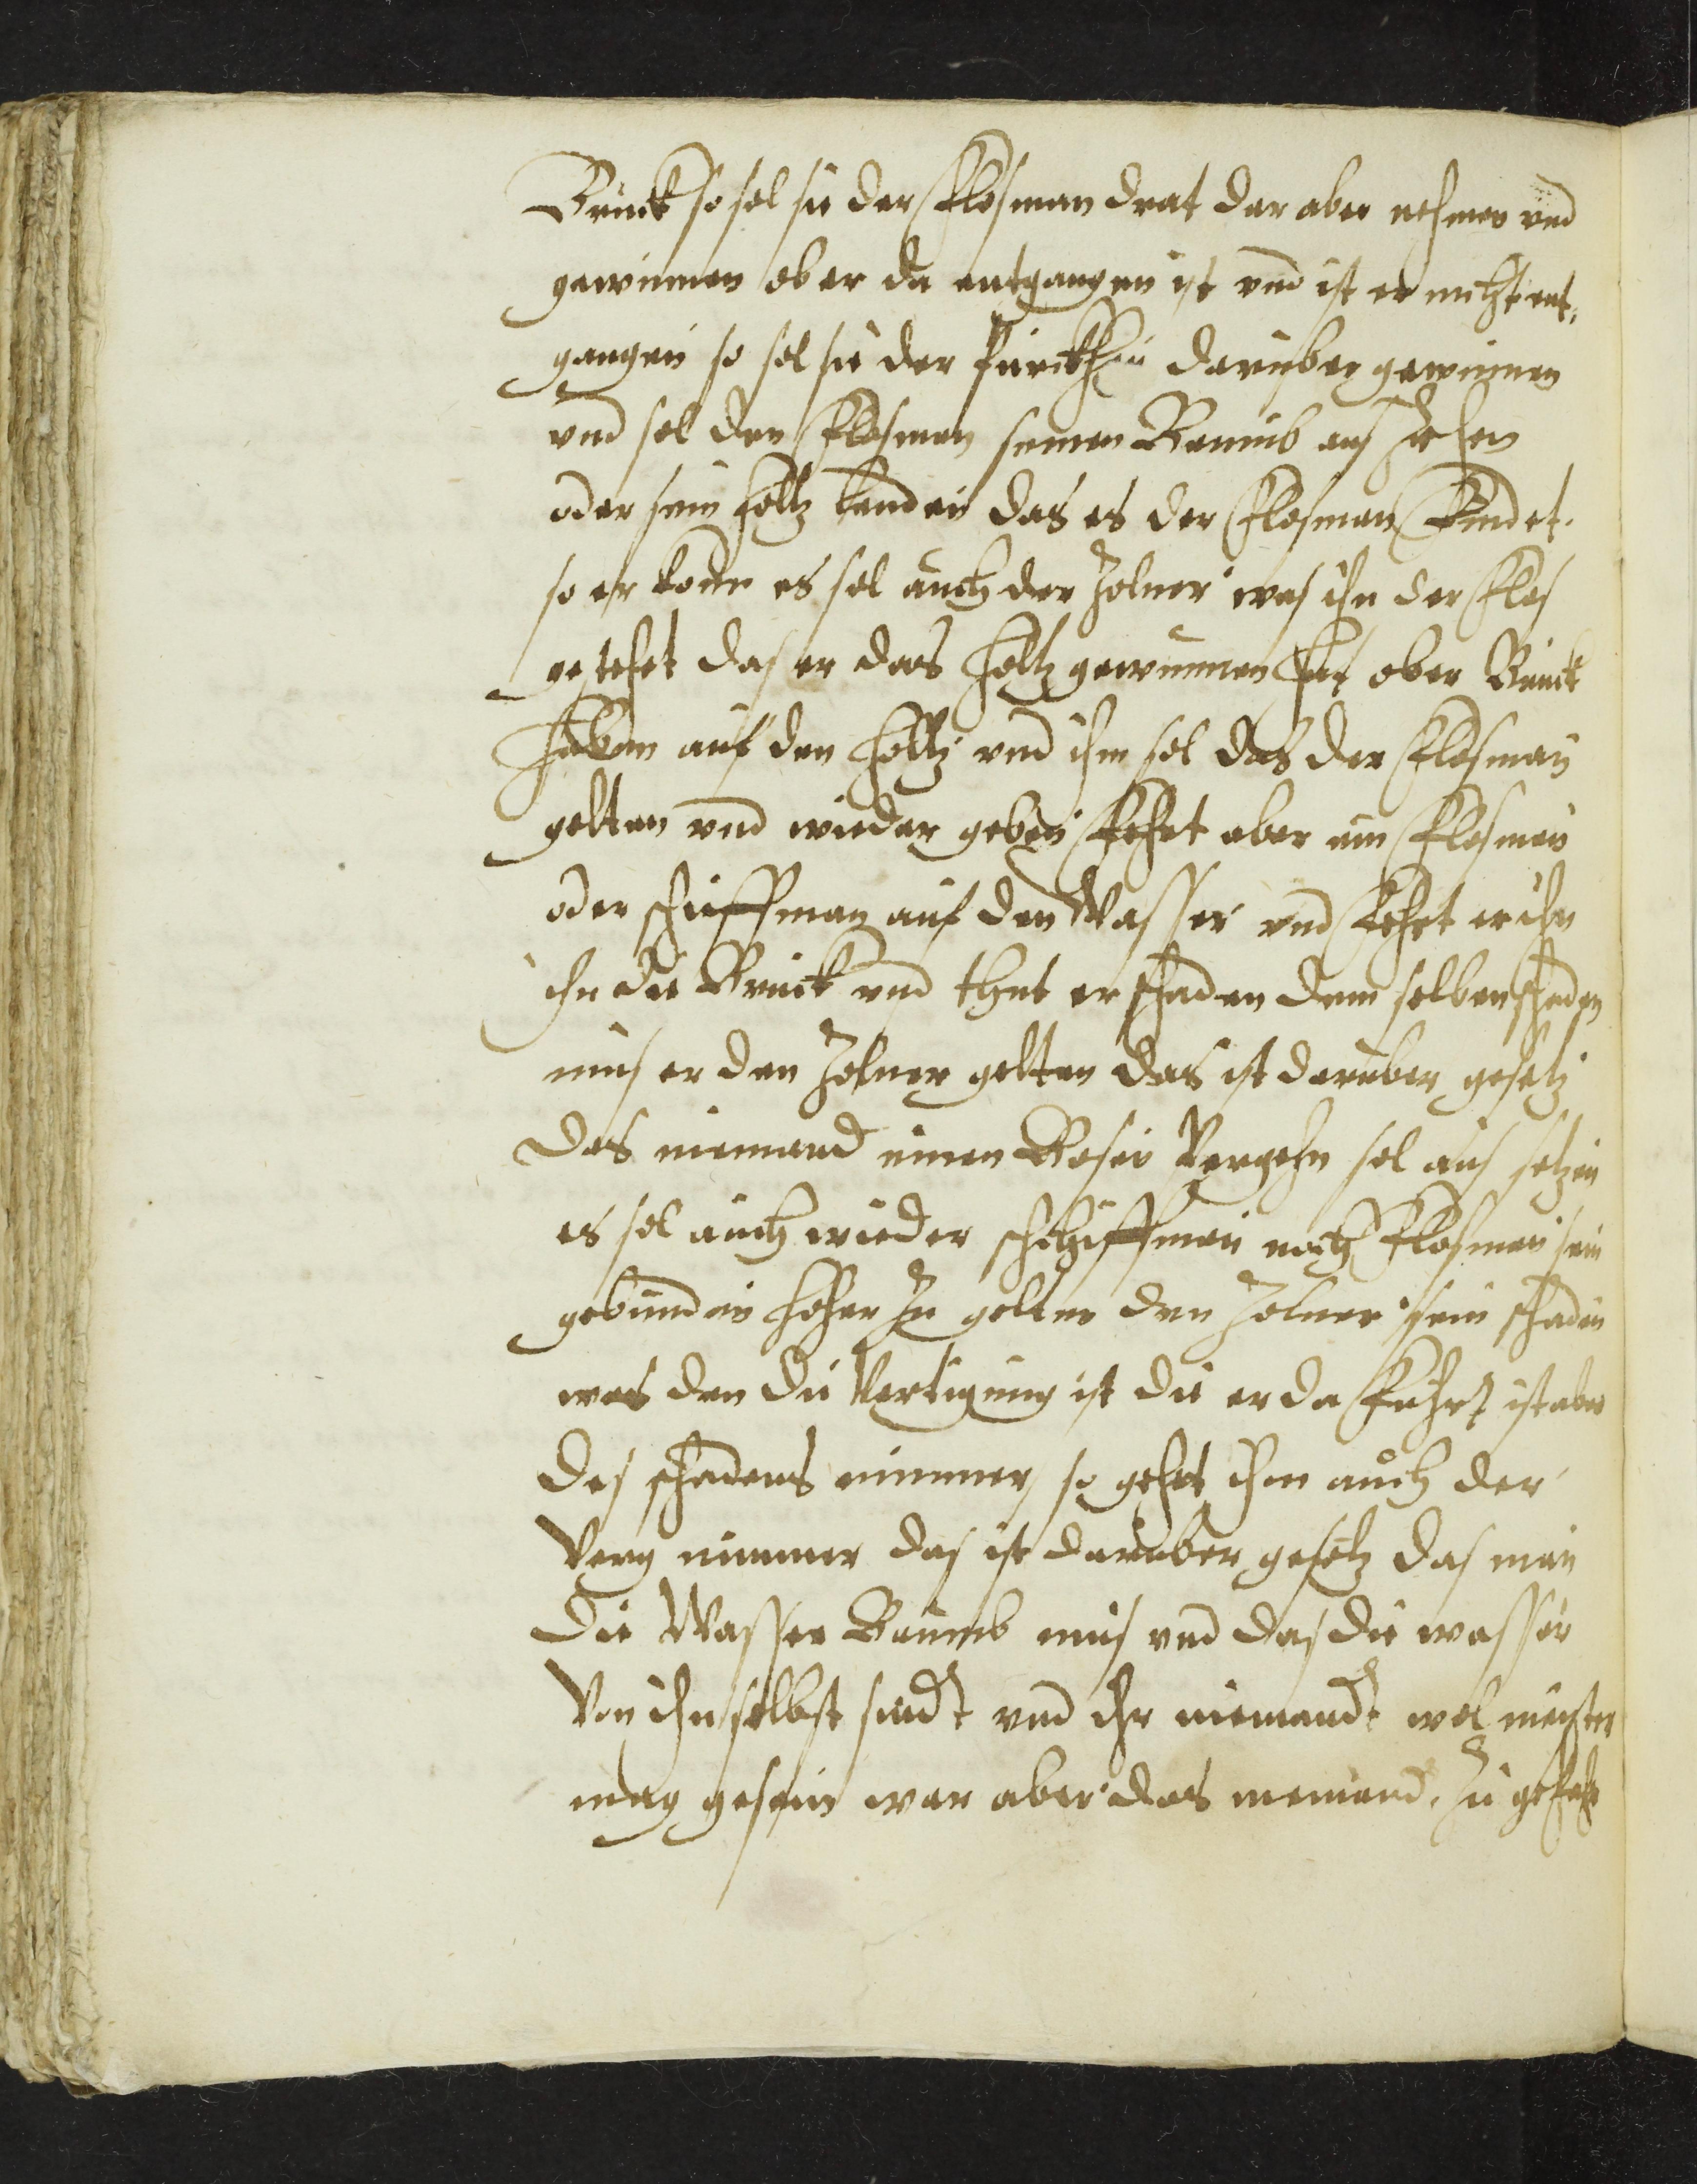 Bruck so sol sie der Flosman drat dar aber nehmen vnd
gewinnen ob er da entgangen ist vnd ist er nicht ent,
gangen so sol sie der daruber gewinnen
vnd sol den Flosman seinen Baumb aus Ziehen
oder sein holtz lenden das es der Flosman findet.
so er kome es sol auch der Zolner was ihn der Flos
gestehet das er das holtz gewunnen hat ober Bruck
haben auf den holtz vnd ihm sol das der Flosman
gelten vnd wieder geben Fehrt aber ein Flosman
oder schiffman auf den Wasser vnd Fehrt er ihn
ihn die Bruck vnd thut er schaden dem selben schaden
mus er den Zolner gelten das ist daruber gesetz
das niemand einen Bosen Vergehn sol aus setzen
es sol auch wieder schchiffman noch Flosman sein
gebunden hoher Zu gelten den Zolner sein schaden
was den die Vertigung ist die er da Fuhrt ist aber
des schadens nimmer so gehet ihm auch der
Verg nimmer das ist daruber gesetz das man
die Wasser Baumb mus vnd das die wasser
Von ihn selbst sindt vnd ihr niemandt wol meister
mag gesein war aber das niemand. Zu